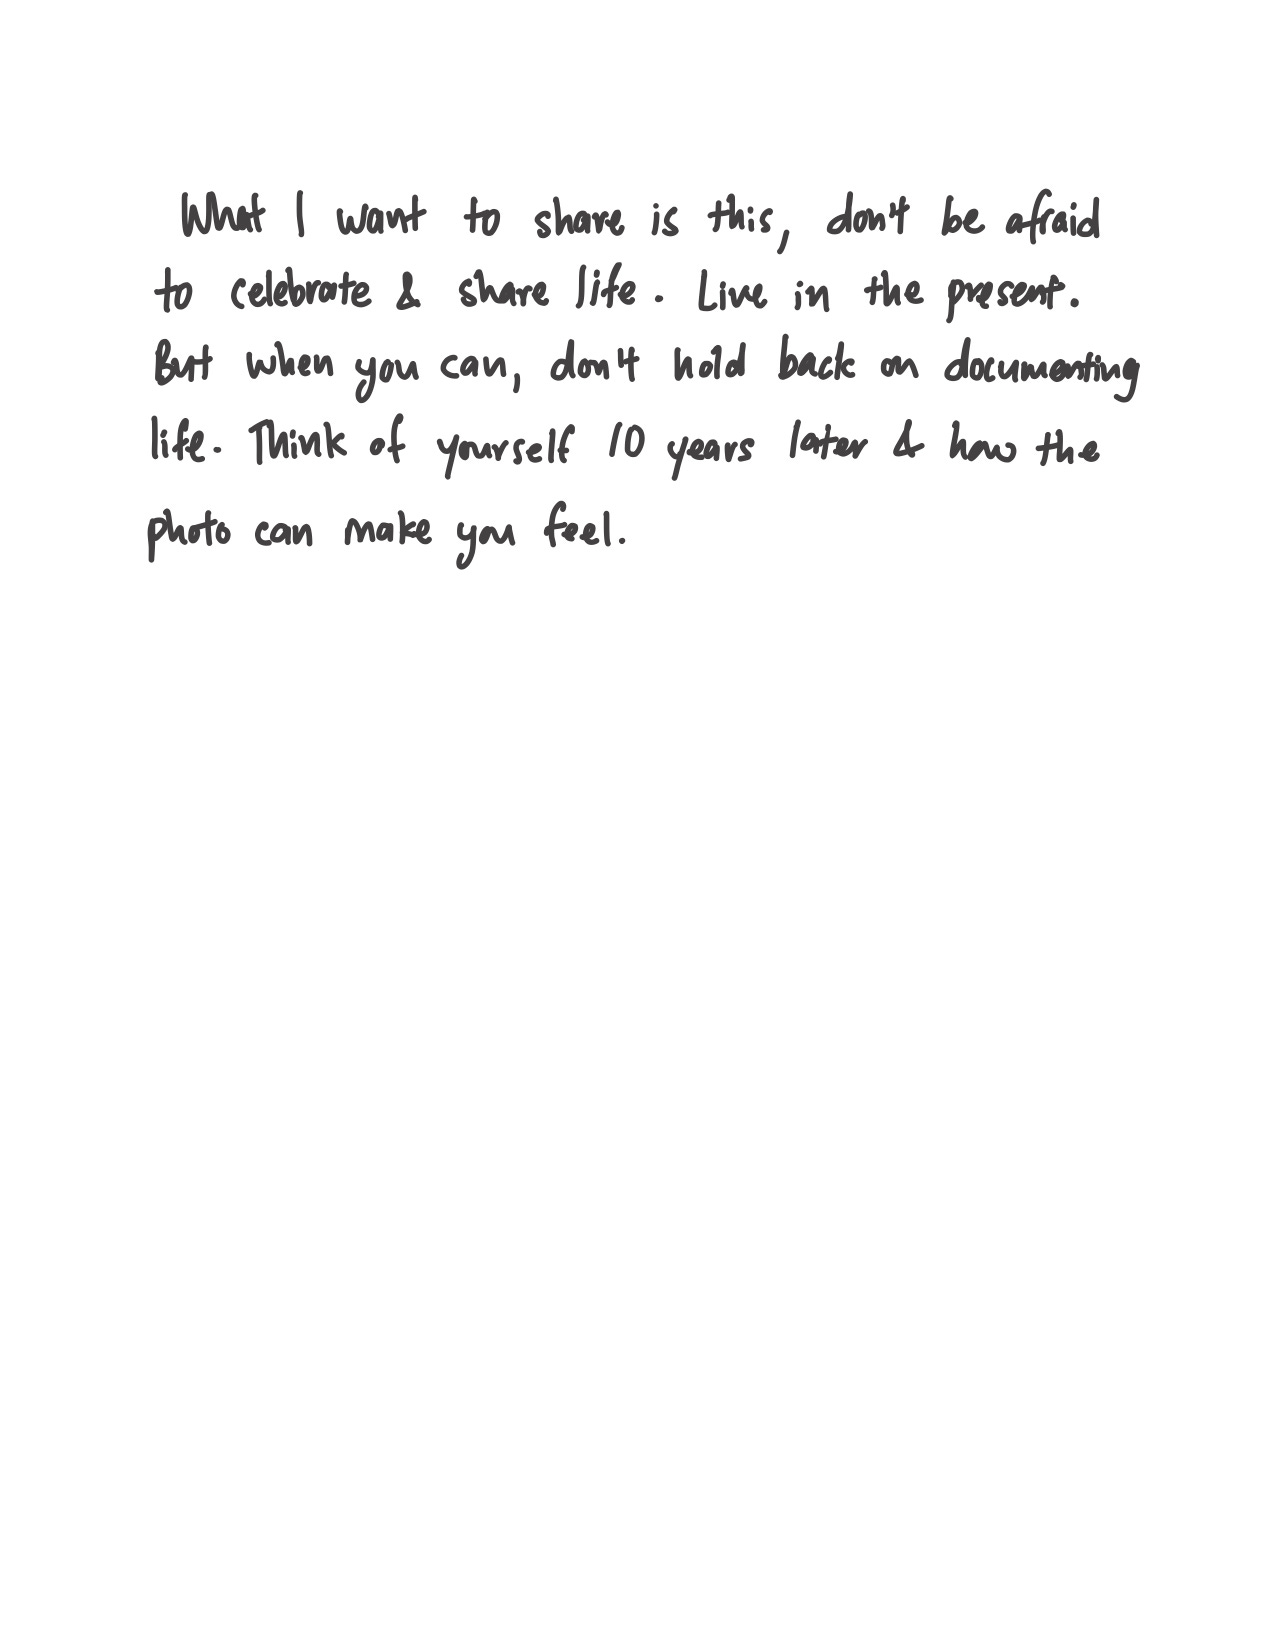 What I want to share is this, don't be afraid
to celebrate & share life. Live in the present.
But when you can, don't hold back on documenting
life. Think of yourself 10 years later & how the
photo can make you feel.